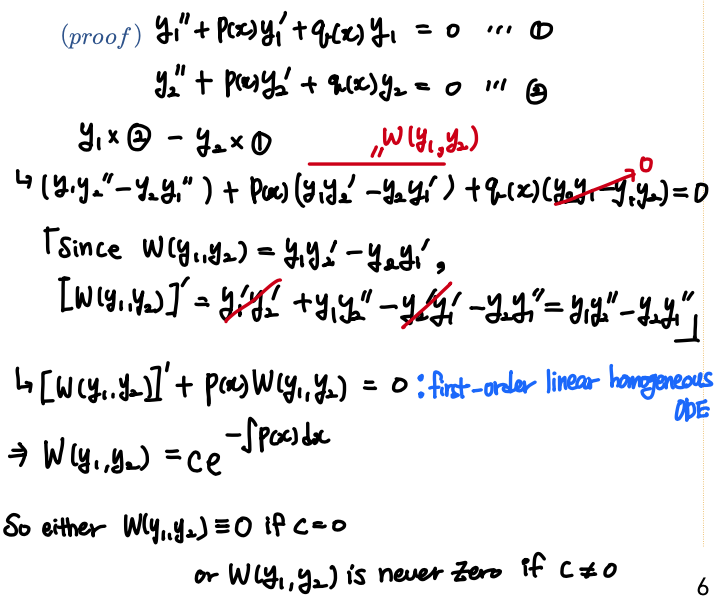 (proof) y₁'' + p(x)y₁' + q(x)y₁ = 0 ... ①
y₂'' + p(x)y₂' + q(x)y₂ = 0 ... ②
y₁ × ② − y₂ × ① "W(y₁,y₂)
↳ (y₁y₂'' − y₂y₁'') + p(x)(y₁y₂' − y₂y₁') + q(x)(y₂y₁ − y₁y₂) = 0 0
「Since W(y₁,y₂) = y₁y₂' − y₂y₁',
[W(y₁,y₂)]' = y₁'y₂' + y₁y₂'' − y₂'y₁' − y₂y₁'' = y₁y₂'' − y₂y₁''」
↳ [W(y₁,y₂)]' + p(x)W(y₁,y₂) = 0 : first-order linear homogeneous
ODE
⇒ W(y₁,y₂) = ce^(−∫p(x)dx)
So either W(y₁,y₂) ≡ 0 if c = 0
or W(y₁,y₂) is never zero if c ≠ 0
6